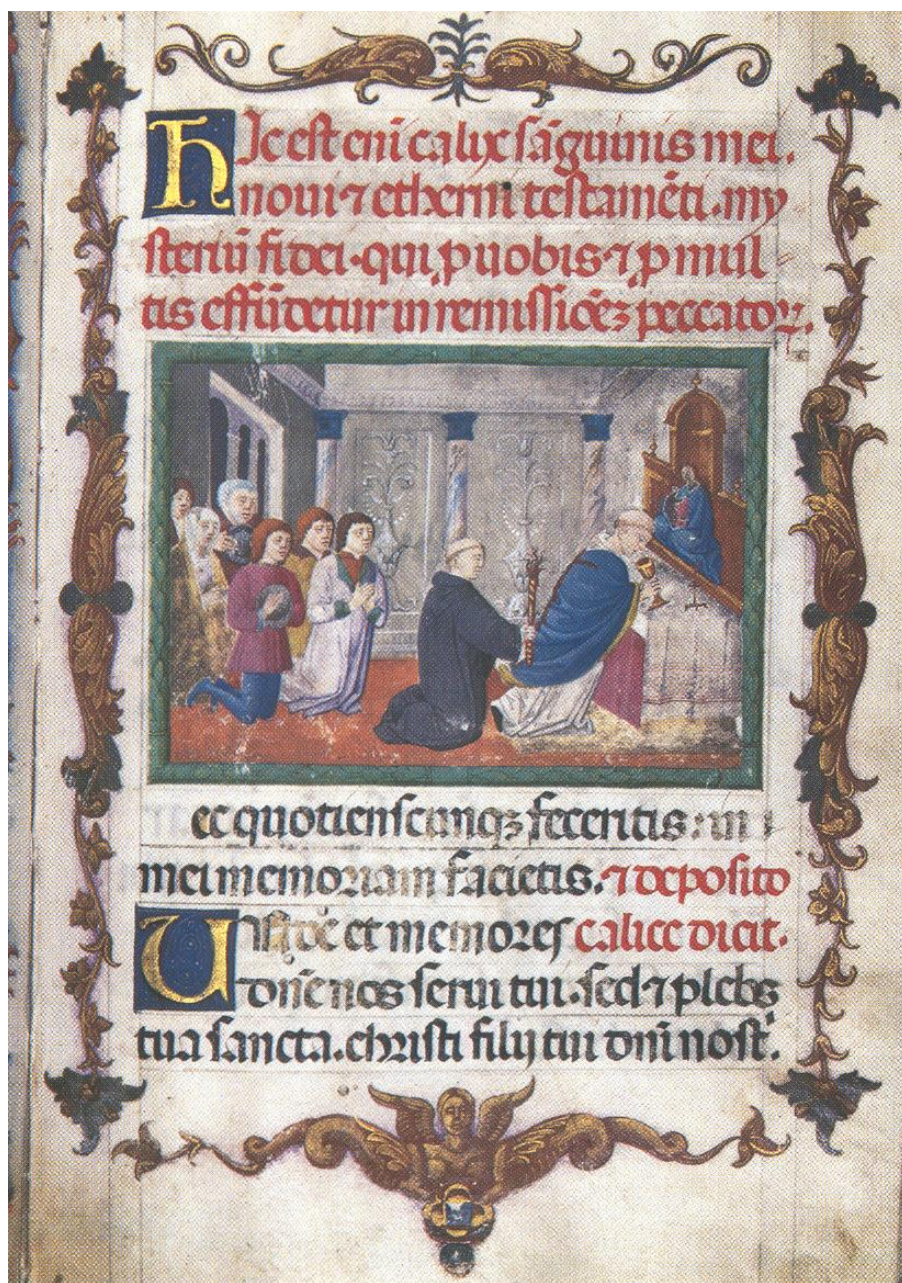 HIc est eni͂ calix sa͂guinis mei.
noui ⁊ etherni testame͂ti. my
steriu͂ fidei. qui ꝓ uobis ⁊ ꝓ mul
tis effu͂detur in remissio͂eꝫ peccatoꝝ.
ec quotienscunqꝫ feceritis: in
mei memoriam facietis. ⁊ deposito
Un͂de et memores calice dicit.
dn͂e nos serui tui. sed ⁊ plebs
tua sancta. christi filij tui dn͂i nost͂.